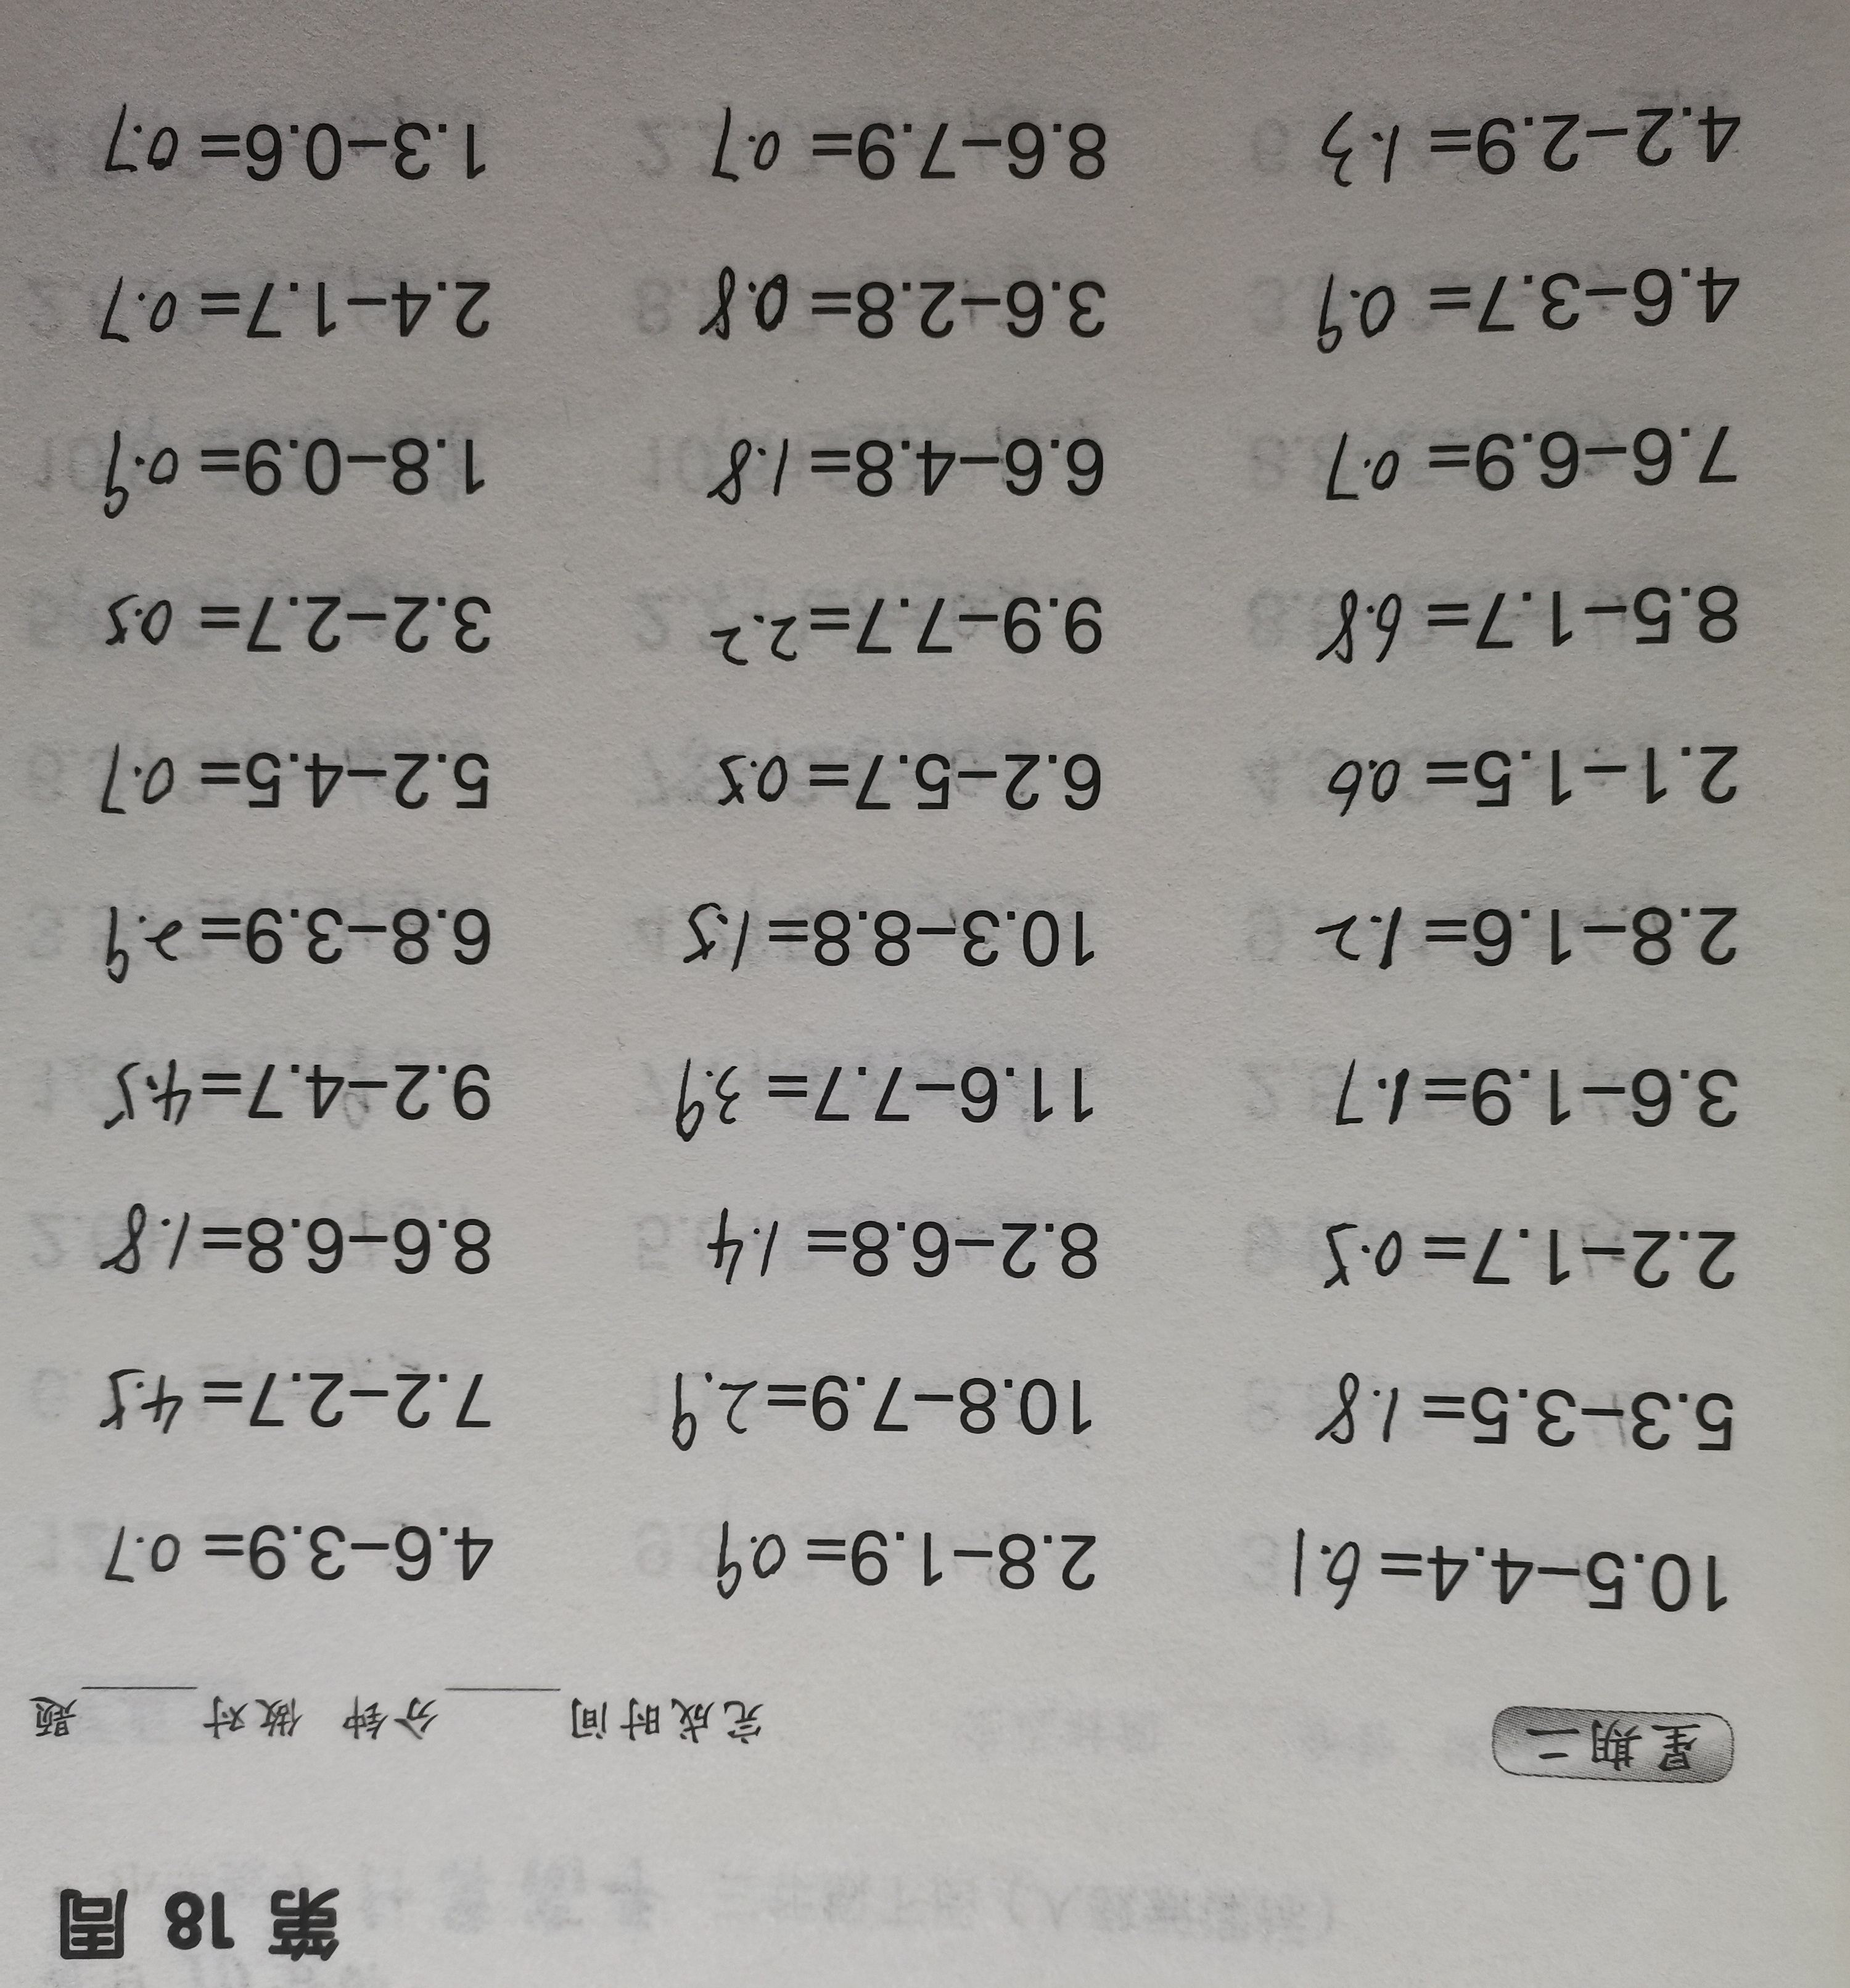 第 18 周
星期二
完成时间____分钟 做对____题
10.5-4.4=6.1 2.8-1.9=0.9 4.6-3.9=0.7
5.3-3.5=1.8 10.8-7.9=2.9 7.2-2.7=4.5
2.2-1.7=0.5 8.2-6.8=1.4 8.6-6.8=1.8
3.6-1.9=1.7 11.6-7.7=3.9 9.2-4.7=4.5
2.8-1.6=1.2 10.3-8.8=1.5 6.8-3.9=2.9
2.1-1.5=0.6 6.2-5.7=0.5 5.2-4.5=0.7
8.5-1.7=6.8 9.9-7.7=2.2 3.2-2.7=0.5
7.6-6.9=0.7 6.6-4.8=1.8 1.8-0.9=0.9
4.6-3.7=0.9 3.6-2.8=0.8 2.4-1.7=0.7
4.2-2.9=1.3 8.6-7.9=0.7 1.3-0.6=0.7